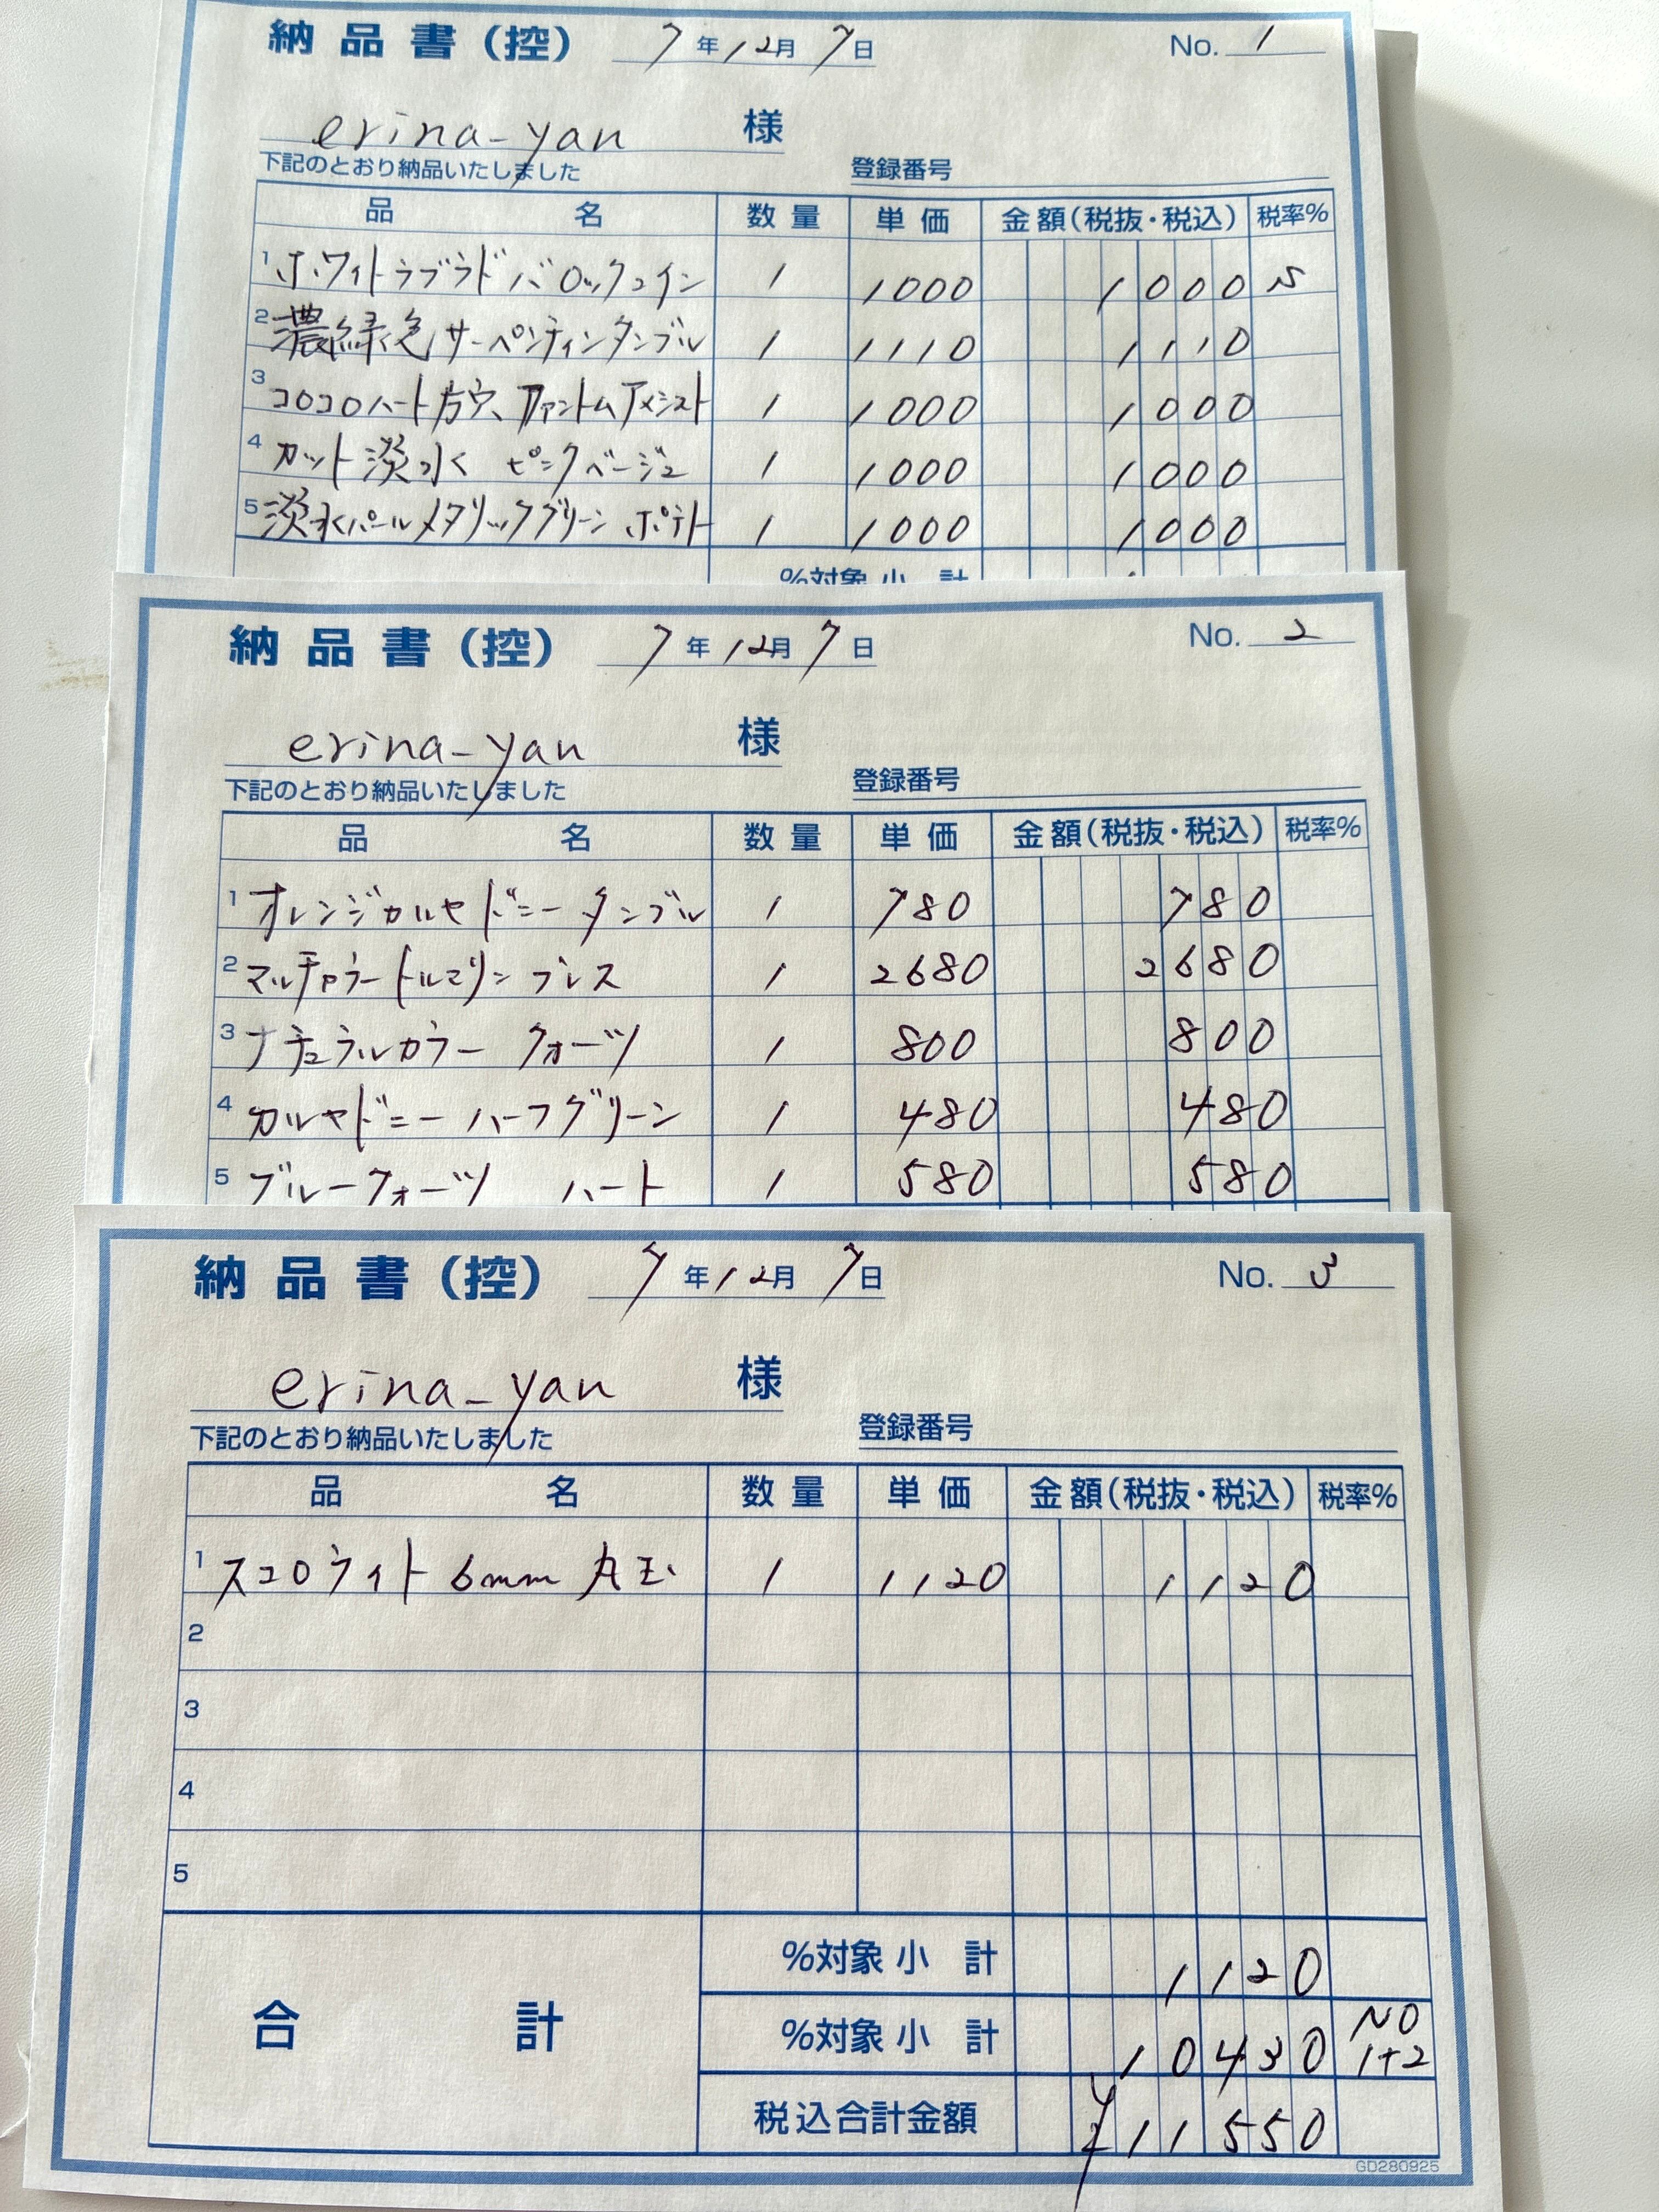 納品書(控) 7年12月7日 No. 1
erina-yan 様
下記のとおり納品いたしました 登録番号
品名 数量 単価 金額(税抜・税込) 税率%
1 ホワイトラブラドバロックコイン 1 1000 1000
2 濃緑色サーペンティンタンブル 1 1110 1110
3 コロコロハート方穴 ファントムアメシスト 1 1000 1000
4 カット淡水 ピンクベージュ 1 1000 1000
5 淡水パールメタリックグリーン ポテト 1 1000 1000
%対象 小計
納品書(控) 7年12月7日 No. 2
erina-yan 様
下記のとおり納品いたしました 登録番号
品名 数量 単価 金額(税抜・税込) 税率%
1 オレンジカルセドニー タンブル 1 780 780
2 マルチカラートルマリン ブレス 1 2680 2680
3 ナチュラルカラー クォーツ 1 800 800
4 カルセドニー ハーフグリーン 1 480 480
5 ブルークォーツ ハート 1 580 580
納品書(控) 7年12月7日 No. 3
erina-yan 様
下記のとおり納品いたしました 登録番号
品名 数量 単価 金額(税抜・税込) 税率%
1 スコロライト 6mm 丸玉 1 1120 1120
2
3
4
5
合計 %対象 小計 1120
%対象 小計 10430 NO 1+2
税込合計金額 ¥11550
GD280925